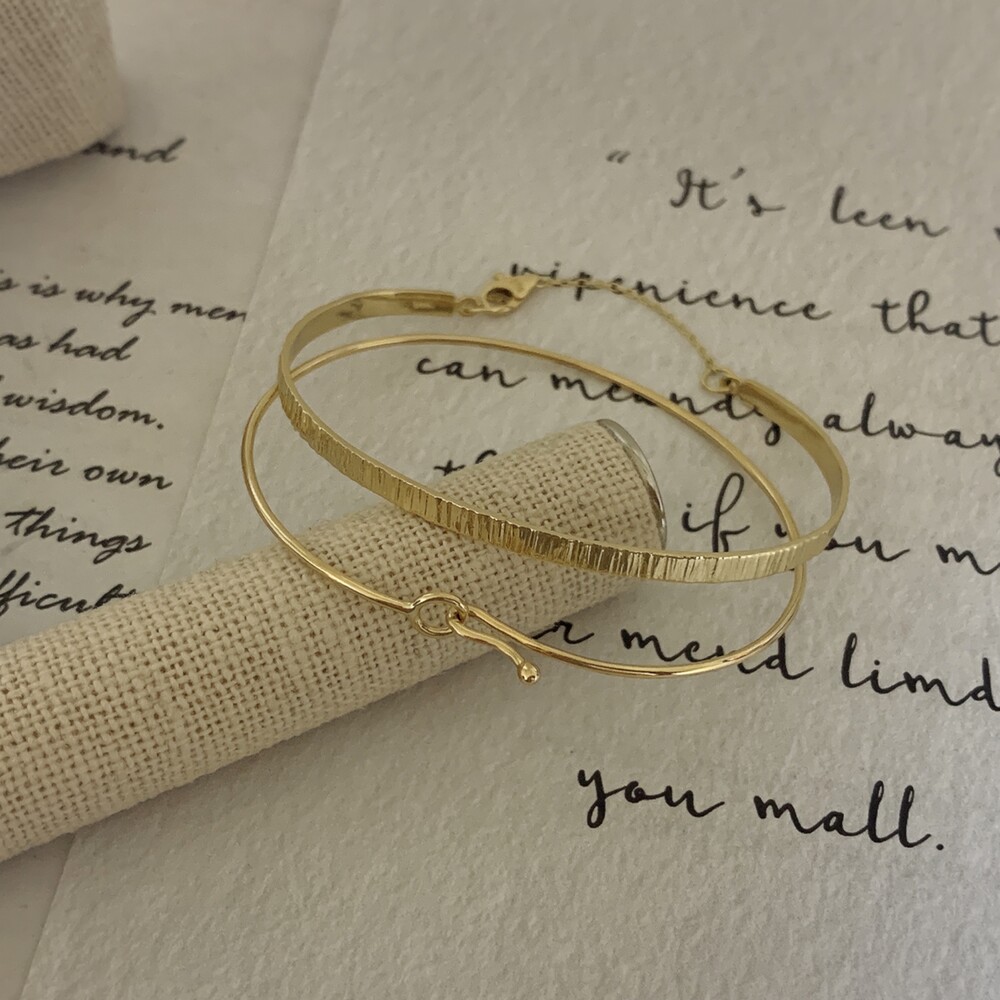 and
is why men
as had
wisdom.
their own
things
"It's leen
wipenience that
can
alway
if you m
mend limd
you mall.